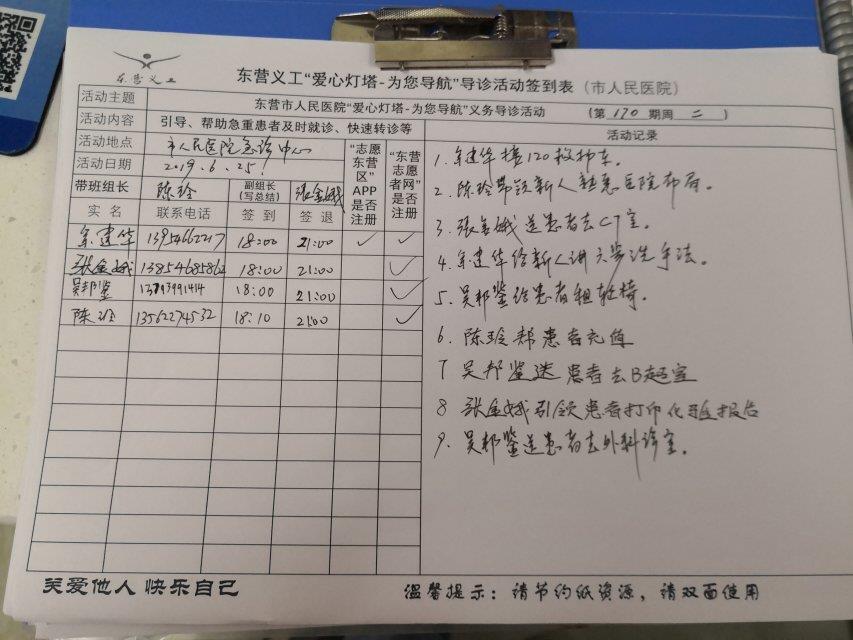 东营义工
东营义工“爱心灯塔-为您导航”导诊活动签到表（市人民医院）
活动主题 东营市人民医院“爱心灯塔-为您导航”义务导诊活动 （第 170 期周 二 ）
活动内容 引导、帮助急重患者及时就诊、快速转诊等
活动地点 市人民医院急诊中心
活动日期 2019.6.25
带班组长 陈玲 副组长（写总结） 张金娥
“志愿东营区”APP是否注册
“东营志愿者网”是否注册
实名 联系电话 签到 签退
牟建华 13954662217 18:00 21:00 ✓ ✓
张金娥 13854685862 18:00 21:00 ✓
吴邦鉴 18:00 21:00 ✓
陈玲 13562274532 18:10 21:00 ✓
活动记录
1. 牟建华接120救护车。
2. 陈玲带领新人熟悉医院布局。
3. 张金娥送患者去CT室。
4. 牟建华给新人讲六步洗手法。
5. 吴邦鉴给患者租轮椅。
6. 陈玲帮患者充值
7 吴邦鉴送患者去B超室
8 张金娥引领患者打印化验报告
9. 吴邦鉴送患者去外科诊室。
关爱他人 快乐自己
温馨提示：请节约纸资源，请双面使用